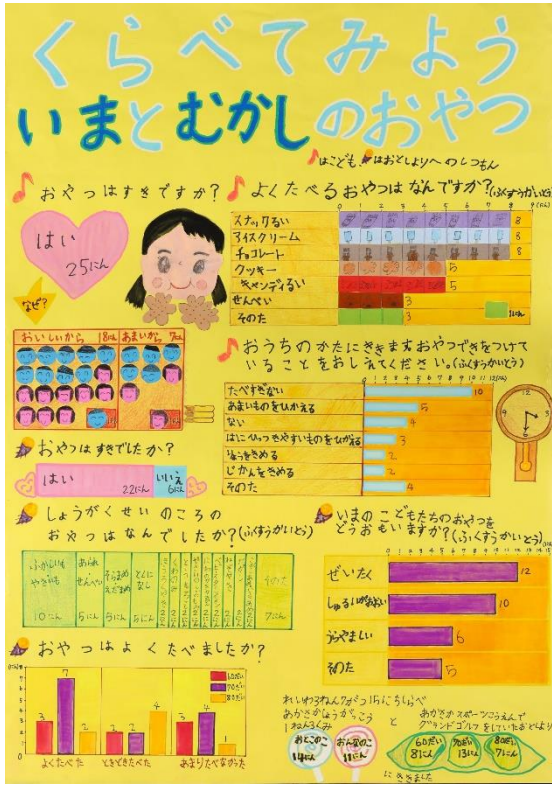 くらべてみよう
いまとむかしのおやつ
はこども はおとしよりへのしつもん
おやつはすきですか？
はい
25にん
なぜ？
おいしいから 18にん
あまいから 7にん
よくたべるおやつはなんですか？(ふくすうかいとう)
0 1 2 3 4 5 6 7 8 9(にん)
スナックるい 8
アイスクリーム 8
チョコレート 8
クッキー 5
キャンディるい 5
せんべい 3
そのた 3
1にん
おうちのかたにききます おやつできをつけて
いることをおしえてください。(ふくすうかいとう)
0 1 2 3 4 5 6 7 8 9 10 11 12(にん)
たべすぎない 10
あまいものをひかえる 5
ない 4
はにひっつきやすいものをひかえる 3
りょうをきめる 2
じかんをきめる 2
そのた 4
12
3
6
9
おやつはすきでしたか？
はい
22にん
いいえ
6にん
しょうがくせいのころの
おやつはなんでしたか？(ふくすうかいとう)
ふかしいも
やきいも
10にん
あられ
せんべい
5にん
そらまめ
えだまめ
5にん
とくに
なし
5にん
そのた
7にん
いまのこどもたちのおやつを
どうおもいますか？(ふくすうかいとう)
0 1 2 3 4 5 6 7 8 9 10 11 12 13 14 15
ぜいたく 12
しゅるいがおおい 10
うらやましい 6
そのた 5
おやつはよくたべましたか？
(にん)
60だい
70だい
80だい
3 7 2
2 2 4
3 4 1
よくたべた
ときどきたべた
あまりたべなかった
れいわ3ねん7がつ15にちしらべ
あかさかしょうがっこう
1ねん3くみ
と
あかさかスポーツこうえんで
グランドゴルフをしていたおとしより
おとこのこ
14にん
おんなのこ
11にん
60だい
8にん
70だい
13にん
80だい
7にん
にききました